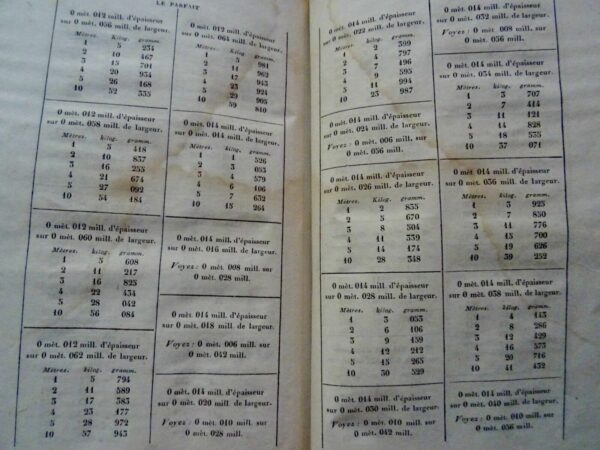 LE PARFAIT
0 mèt. 012 mill. d'épaisseur
sur 0 mèt. 056 mill. de largeur.
Mètres. Kilog. gramm.
1 5 234
2 10 467
3 15 701
4 20 934
5 26 168
10 52 335
0 mèt. 012 mill. d'épaisseur
sur 0 mèt. 058 mill. de largeur.
Mètres. Kilog. gramm.
1 5 418
2 10 837
3 16 255
4 21 674
5 27 092
10 54 184
0 mèt. 012 mill. d'épaisseur
sur 0 mèt. 060 mill. de largeur.
Mètres. Kilog. gramm.
1 5 608
2 11 217
3 16 825
4 22 434
5 28 042
10 56 084
0 mèt. 012 mill. d'épaisseur
sur 0 mèt. 062 mill. de largeur.
Mètres. Kilog. gramm.
1 5 794
2 11 589
3 17 383
4 23 177
5 28 972
10 57 943
0 mèt. 012 mill. d'épaisseur
sur 0 mèt. 064 mill. de largeur.
Mètres. Kilog. gramm.
1 5 981
2 11 962
3 17 943
4 23 924
5 29 905
10 59 810
0 mèt. 014 mill. d'épaisseur
sur 0 mèt. 014 mill. de largeur.
Mètres. Kilog. gramm.
1 1 526
2 3 053
3 4 579
4 6 106
5 7 632
10 15 264
0 mèt. 014 mill. d'épaisseur
sur 0 mèt. 016 mill. de largeur.
Voyez : 0 mèt. 008 mill. sur
0 mèt. 028 mill.
0 mèt. 014 mill. d'épaisseur
sur 0 mèt. 018 mill. de largeur.
Voyez : 0 mèt. 006 mill. sur
0 mèt. 042 mill.
0 mèt. 014 mill. d'épaisseur
sur 0 mèt. 020 mill. de largeur.
Voyez : 0 mèt. 010 mill. sur
0 mèt. 028 mill.
0 mèt. 014 mill. d'épaisseur
sur 0 mèt. 022 mill. de largeur.
Mètres. Kilog. gramm.
1 2 399
2 4 797
3 7 196
4 9 595
5 11 994
10 23 987
0 mèt. 014 mill. d'épaisseur
sur 0 mèt. 024 mill. de largeur.
Voyez : 0 mèt. 006 mill. sur
0 mèt. 056 mill.
0 mèt. 014 mill. d'épaisseur
sur 0 mèt. 026 mill. de largeur.
Mètres. Kilog. gramm.
1 2 835
2 5 670
3 8 504
4 11 339
5 14 174
10 28 348
0 mèt. 014 mill. d'épaisseur
sur 0 mèt. 028 mill. de largeur.
Mètres. Kilog. gramm.
1 3 053
2 6 106
3 9 159
4 12 212
5 15 265
10 30 529
0 mèt. 014 mill. d'épaisseur
sur 0 mèt. 030 mill. de largeur.
Voyez : 0 mèt. 010 mill. sur
0 mèt. 042 mill.
sur 0 mèt. 032 mill. de largeur.
Voyez : 0 mèt. 008 mill. sur
0 mèt. 056 mill.
0 mèt. 014 mill. d'épaisseur
sur 0 mèt. 034 mill. de largeur.
Mètres. Kilog. gramm.
1 3 707
2 7 414
3 11 121
4 14 828
5 18 535
10 37 071
0 mèt. 014 mill. d'épaisseur
sur 0 mèt. 036 mill. de largeur.
Mètres. Kilog. gramm.
1 3 925
2 7 850
3 11 776
4 15 700
5 19 626
10 39 252
0 mèt. 014 mill. d'épaisseur
sur 0 mèt. 038 mill. de largeur.
Mètres. Kilog. gramm.
1 4 143
2 8 286
3 12 429
4 16 573
5 20 716
10 41 432
0 mèt. 014 mill. d'épaisseur
sur 0 mèt. 040 mill. de largeur.
Voyez : 0 mèt. 010 mill. sur
0 mèt. 056 mill.